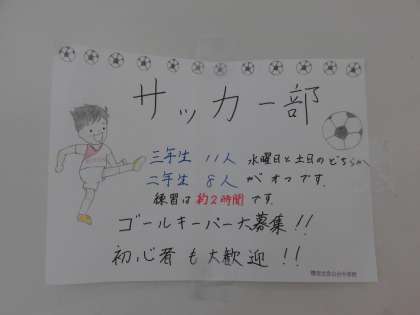 サッカー部
三年生 11人 水曜日と土日のどちらか
二年生 8人 がオフです。
練習は約2時間です。
ゴールキーパー大募集!!
初心者も大歓迎!!